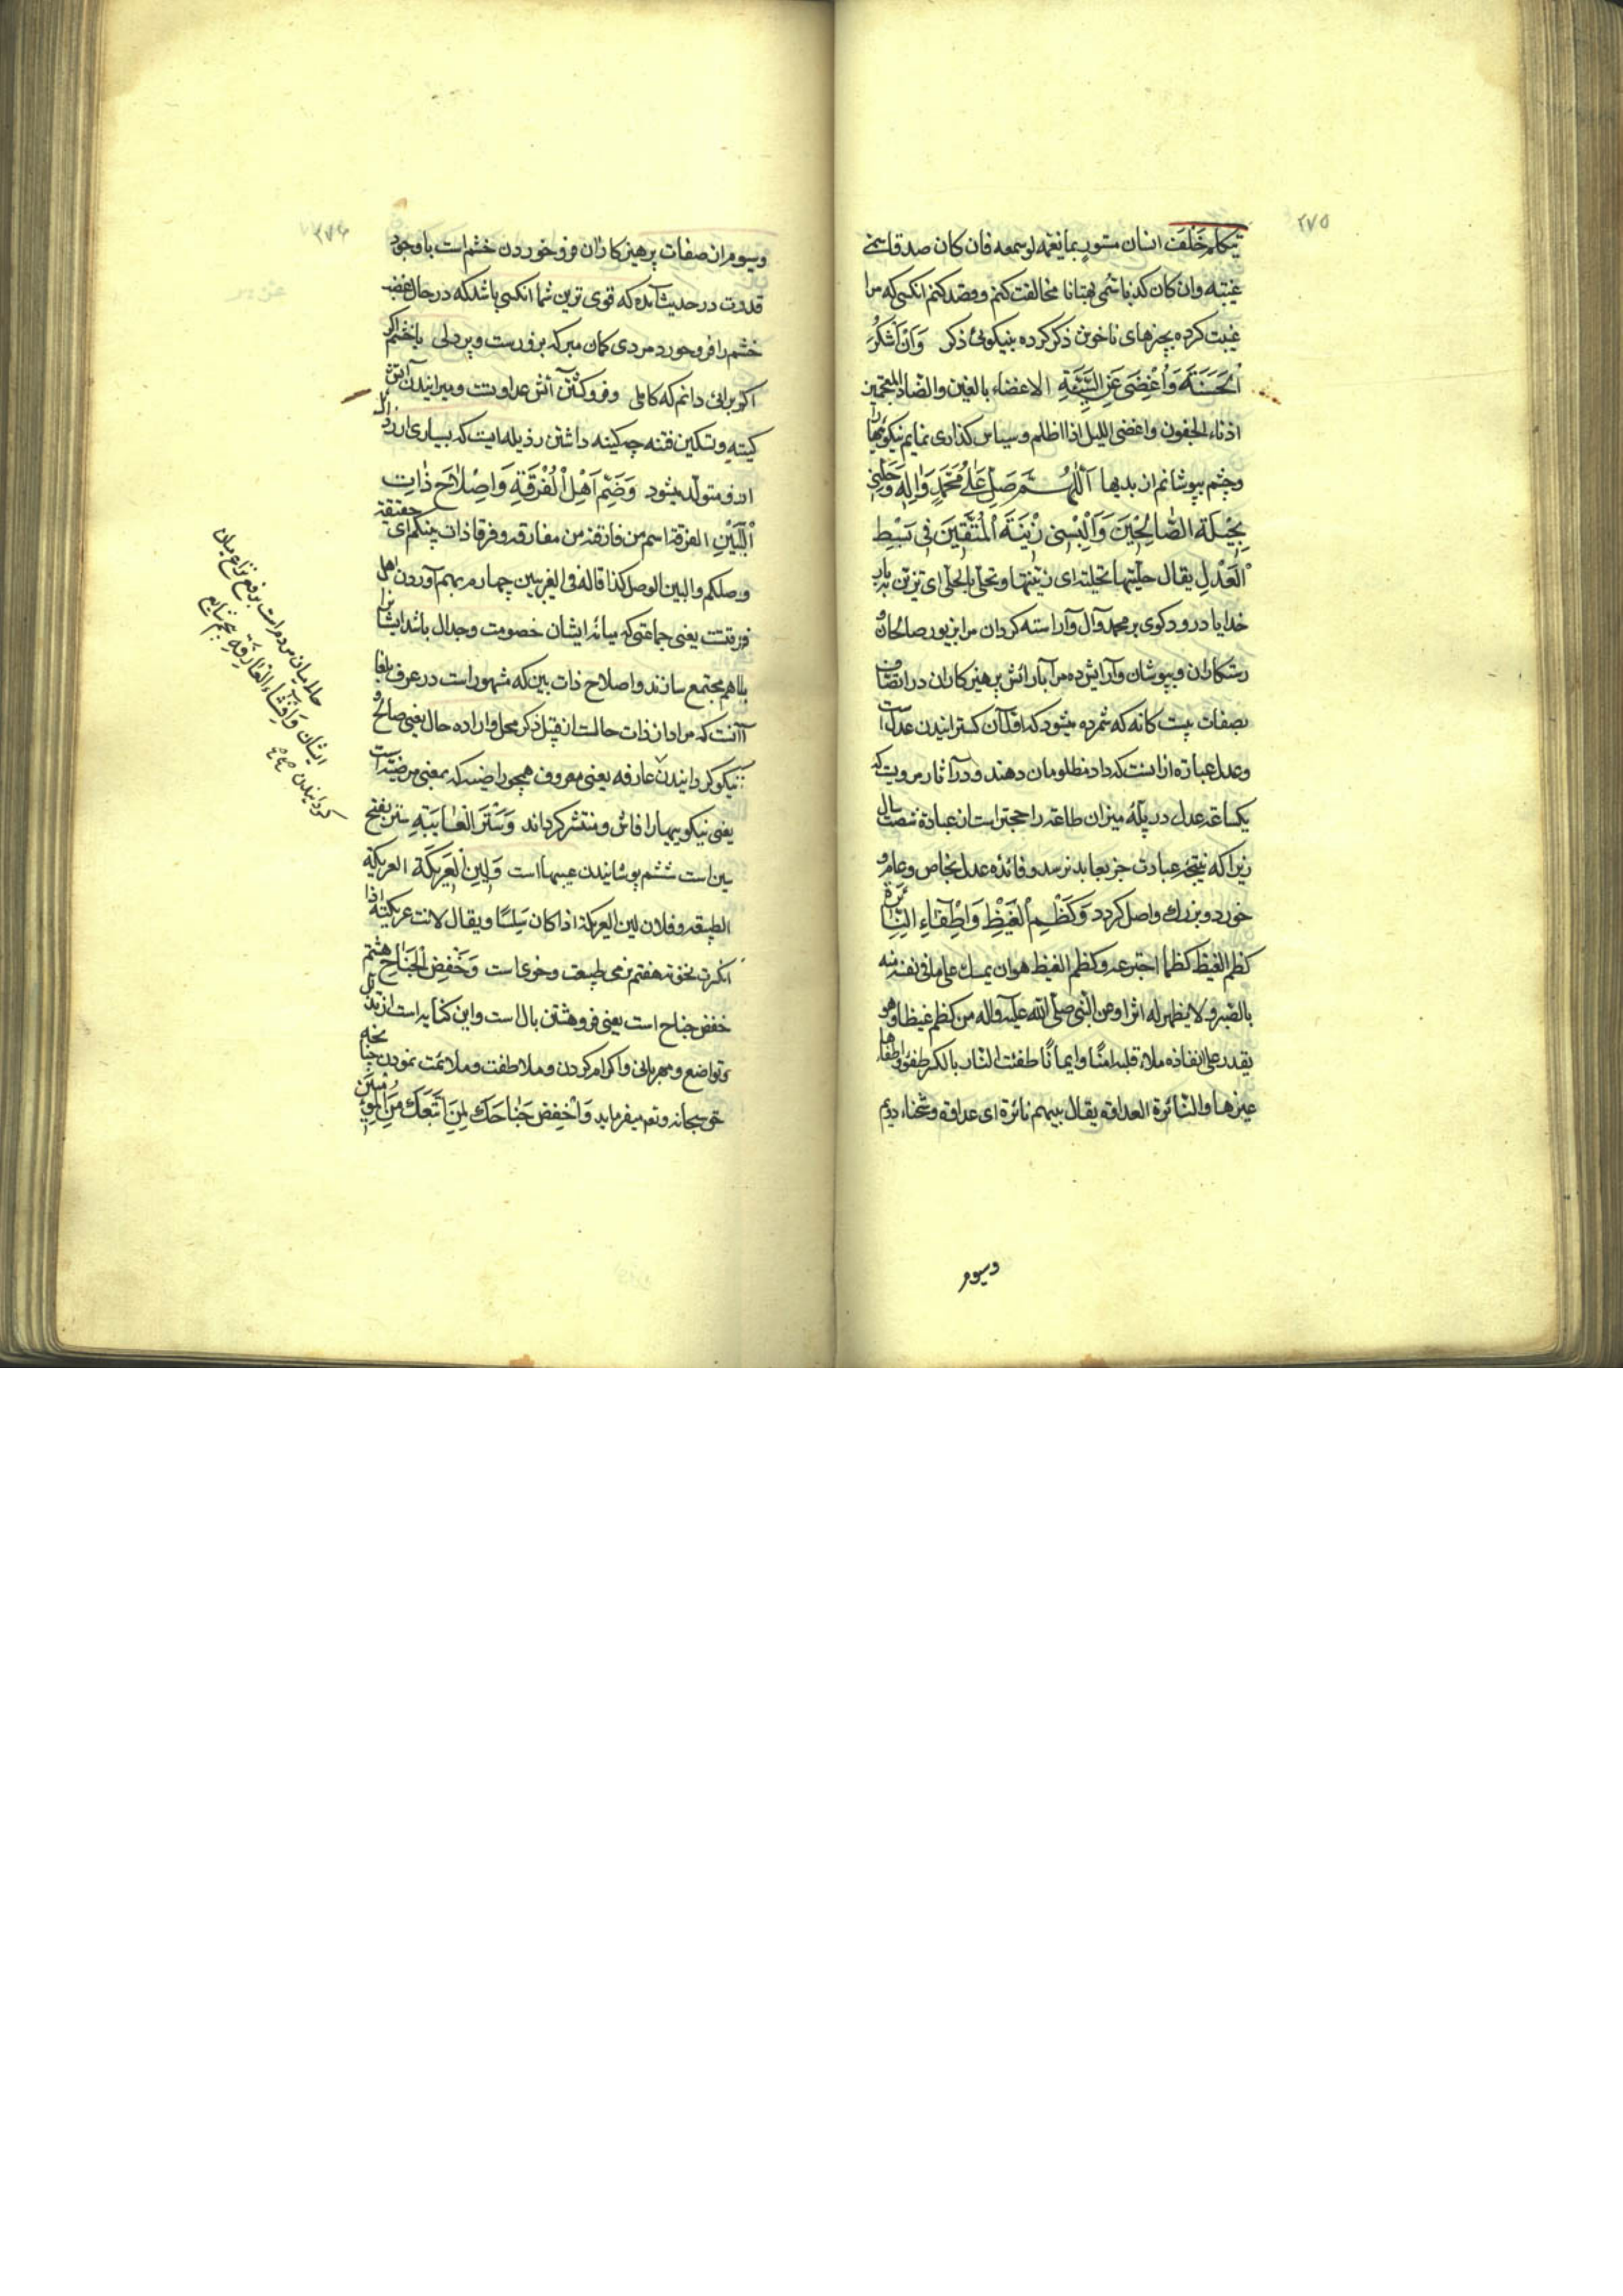 ۲۷۵
یتکلم خلف انسان مستور بما یغمه لو سمعه فان کان صدقا سمی
غیبته وان کان کذبا سُمی بهتانا مخالفت کنم و قصد کنم انکسی که مرا
غیبت کرده بچیزهای ناخوش ذکر کرده بنیکویی ذکر وَاَنْ اَشْکُرَ
الْحَسَنَةَ وَاُغْضِیَ عَنِ السَّیِّئَةِ الاغضاء بالغین والضاد المعجمتین
ادناء الجفون واغضی اللیل اذا اظلم و سپاس کذاری نمایم نیکوئیها را
و چشم بپوشانم از بدیها اَللّٰهُمَّ صَلِّ عَلٰی مُحَمَّدٍ وَاٰلِهِ وَحَلِّنِی
بِحِلْیَةِ الصَّالِحِیْنَ وَاَلْبِسْنِی زِیْنَةَ الْمُتَّقِیْنَ فِی بَسْطِ
الْعَدْلِ یقال حلّیتها تحلیته ای زینتها وتحلی بالحلی ای تزین به بار
خدایا درود کوی بر محمد وآل و آراسته کردان مرا بزیور صالحان و
رستکاران و بپوشان وآرایش ده مرا بآرائش پرهیزکاران در اتصاف
بصفات بیست کانه که شمرده میشود که اوّل آن کسترانیدن عدل است
وعدل عبارة از انست که داد مظلومان دهند و در آثار مرویست که
یکساعته عدل در پلّهٔ میزان طاعة راجحتر است از عبادة شصت سال
زیرا که نتیجهٔ عبادت جز بعابد نرسد و فائدهٔ عدل بخاص وعام و
خورد و بزرك واصل کردد وَکَظْمِ الْغَیْظِ وَاِطْفَاءِ النَّائِرَةِ
کظم الغیظ کظما اجترعه و کظم الغیظ هو ان یمسك علی ما فی نفسه منه
بالصبر و لا یظهر له اثرا وعن النبی صلی الله علیه واله من کظم غیظا وهو
یقدر علی انفاذه ملاء قلبه امنًا وایمانًا طفئت النار بالکسر طفؤا واطفاها
غیرها والنائرة العداوة یقال بینهم نائرة ای عداوة وشحناء دویم
وسیوم
۲۷۶
وسیوم از صفات پرهیزکاران فرو خوردن خشم است با وجود
قدرت در حدیث آمده که قوی ترین شما انکسی باشد که در حال غضب
خشم را فرو خورد مردی کمان مبر که بزورست و پر دلی با خشم اکر
اکر برائی دانم که کاملی و فرو کشتن آتش عداوتست و میرانیدن آتش
کینه و تسکین فتنه چه کینه داشتن رذیله ایست که بسیاری از رذائل
از و متولد میشود وَضَمِّ اَهْلِ الْفُرْقَةِ وَاِصْلَاحِ ذٰاتِ
الْبَیْنِ الفرقة اسم من فارقته من مفارقه و فرقا ذات بینکم ای حقیقة
وصلکم والبین الوصل کذا قاله فی الغریبین چهارم بهم آوردن اهل
فرقتست یعنی جماعتی که میانهٔ ایشان خصومت و جدال باشد ایشانرا
با هم مجتمع سازند و اصلاح ذات بین که مشهور است در عرف بلغا
آنست که مراد از ذات حالست از قبیل ذکر محل و اراده حال یعنی صالح و
نیکو کردانیدن عارفه یعنی معروف همچو راضیه که بمعنی مرضیّه است
یعنی نیکوییها را فاش و منتشر کرداند وَسَتْرِ الْعَائِبَةِ ستر بفتح
سین است ششم پوشانیدن عیبها است وَلِیْنِ الْعَرِیْکَةِ العریکة
الطبیعة و فلان لین العریکة اذا کان سَلِسًا و یقال لانت عریکته اذا
انکسرت نخوته هفتم نرمی طبیعت و خوی است وَخَفْضِ الْجَنَاحِ هشتم
خفض جناح است یعنی فرو هشتن بال است و این کنایه است از تذلل
و تواضع و مهربانی و اکرام کردن و ملاطفت و ملائمت نمودن چنانچه
حق سبحانه و تعه میفرماید وَاخْفِضْ جَنَاحَكَ لِمَنِ اتَّبَعَكَ مِنَ الْمُؤْمِنِیْنَ
حال میان مردم است برفع نزاع میان
ایشان وَاِفْشَاءِ الْعَارِفَةِ پنجم شایع
کردانیدن